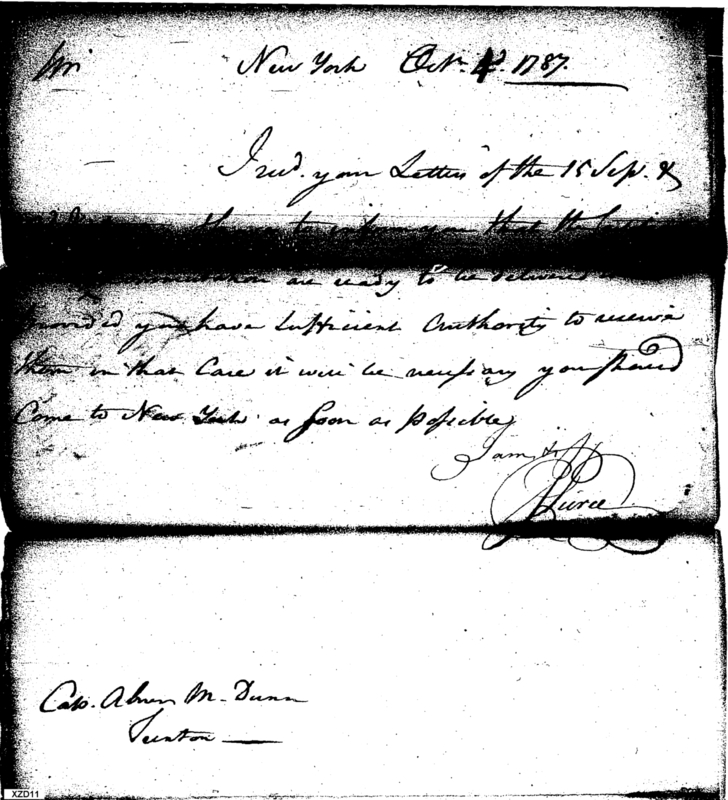 Sir New York Octr. 4th. 1787.
I recd. your Letters of the 15 Sep. &
them to inform you that the
are ready to be delivered
provided you have sufficient Authority to receive
them in that Case it will be necessary you should
Come to New York as soon as possible
I am &
Pierce
Cap. Abner M. Dunn
Trenton
XZD11